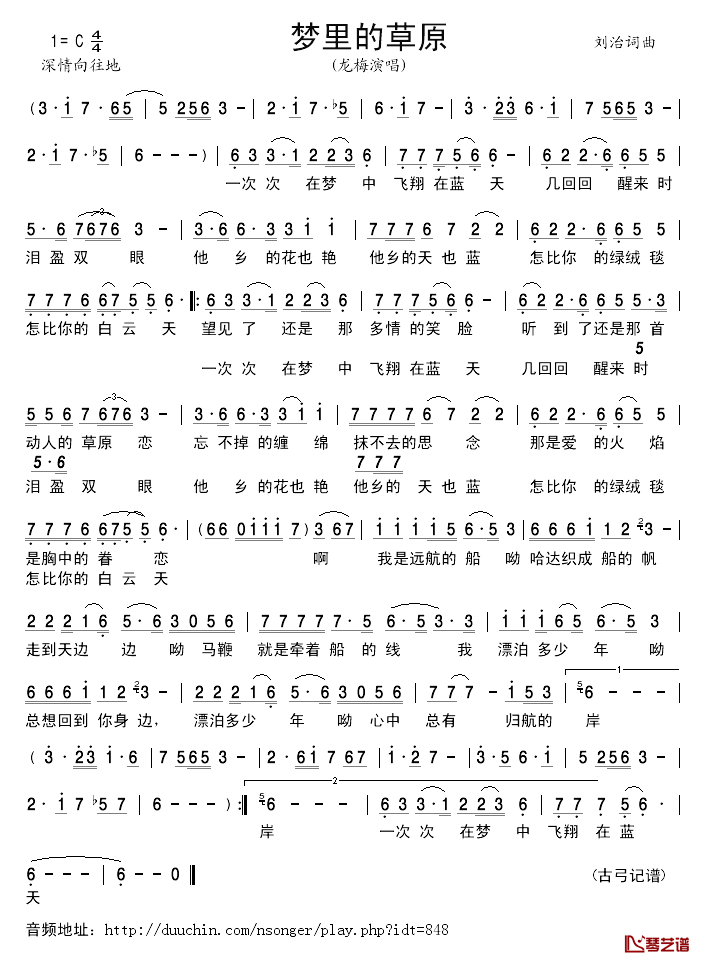 梦里的草原
1= C 4/4
刘治词曲
深情向往地
(龙梅演唱)
(3·i 7·65 | 5 256 3 - | 2·i 7·b5 | 6 i - - | 3·23 6i· | 7 565 3 - |
2·i 7·b5 | 6 - - -) | 6 3 3·1 2 2 3 6 | 7 7 7 5 6 6 - | 6 2 2·6 6 5 5 |
一次 次 在梦 中 飞翔 在蓝 天 几回回 醒来 时
5·6 7676 3 - | 3·6 6·3 3 i i | 7 7 7 6 7 2 2 | 6 2 2·6 6 5 5 |
泪 盈 双 眼 他 乡 的花也 艳 他乡的 天 也 蓝 怎比你 的绿绒 毯
7 7 7 6 67 5 5 6· |: 6 3 3·1 2 2 3 6 | 7 7 7 5 6 6 - | 6 2 2·6 6 5 5·3 |
怎比你的 白 云 天 望见 了 还是 那 多情 的笑 脸 听 到 了还是那 首
5
一次 次 在梦 中 飞翔 在蓝 天 几回回 醒来 时
5 5 6 7 676 3 - | 3·6 6·3 3 i i | 7 7 7 7 6 7 2 2 | 6 2 2·6 6 5 5 |
动人的 草原 恋 忘 不掉 的缠 绵 抹不去的 思 念 那是爱 的火 焰
5·6
7 7 7
泪 盈 双 眼 他 乡 的花也 艳 他乡的 天 也 蓝 怎比你 的绿绒 毯
7 7 7 6 67 5 5 6· | (66 0iii 7) 3 67 | i i i i 5 6·5 3 | 6 6 6 i 1 2 3 - |
是胸中的 眷 恋 啊 我是远航的 船 呦 哈达织成 船的 帆
怎比你的 白 云 天
2 2 2 1 6 5·6 3056 | 7 7 7 7 7·5 6 5 3·3 | i i i 6 5 6·5 3 |
走到天边 边 呦 马鞭 就是牵着 船 的 线 我 漂泊 多少 年 呦
6 6 6 i 1 2 3 - | 2 2 2 1 6 5·6 3056 | 7 7 7 - 7 5 3 | 6 - - |
1
总想回到 你身 边, 漂泊多少 年 呦 心中 总有 归航的 岸
(3·23 i·6 | 7 565 3 - | 2·6i 7 67 | 2 - - - | 3·5 6 i· |
2·i 7 b5 7 | 6 - - -) :| 6 - - | 6 3 3·1 2 2 3 6 | 7 7 7 5 6· |
2
岸 一次 次 在梦 中 飞翔 在 蓝
6 - - - | 6 - - 0 ||
(古弓记谱)
天
音频地址: http://duuchin.com/nsonger/play.php?idt=848
琴艺谱